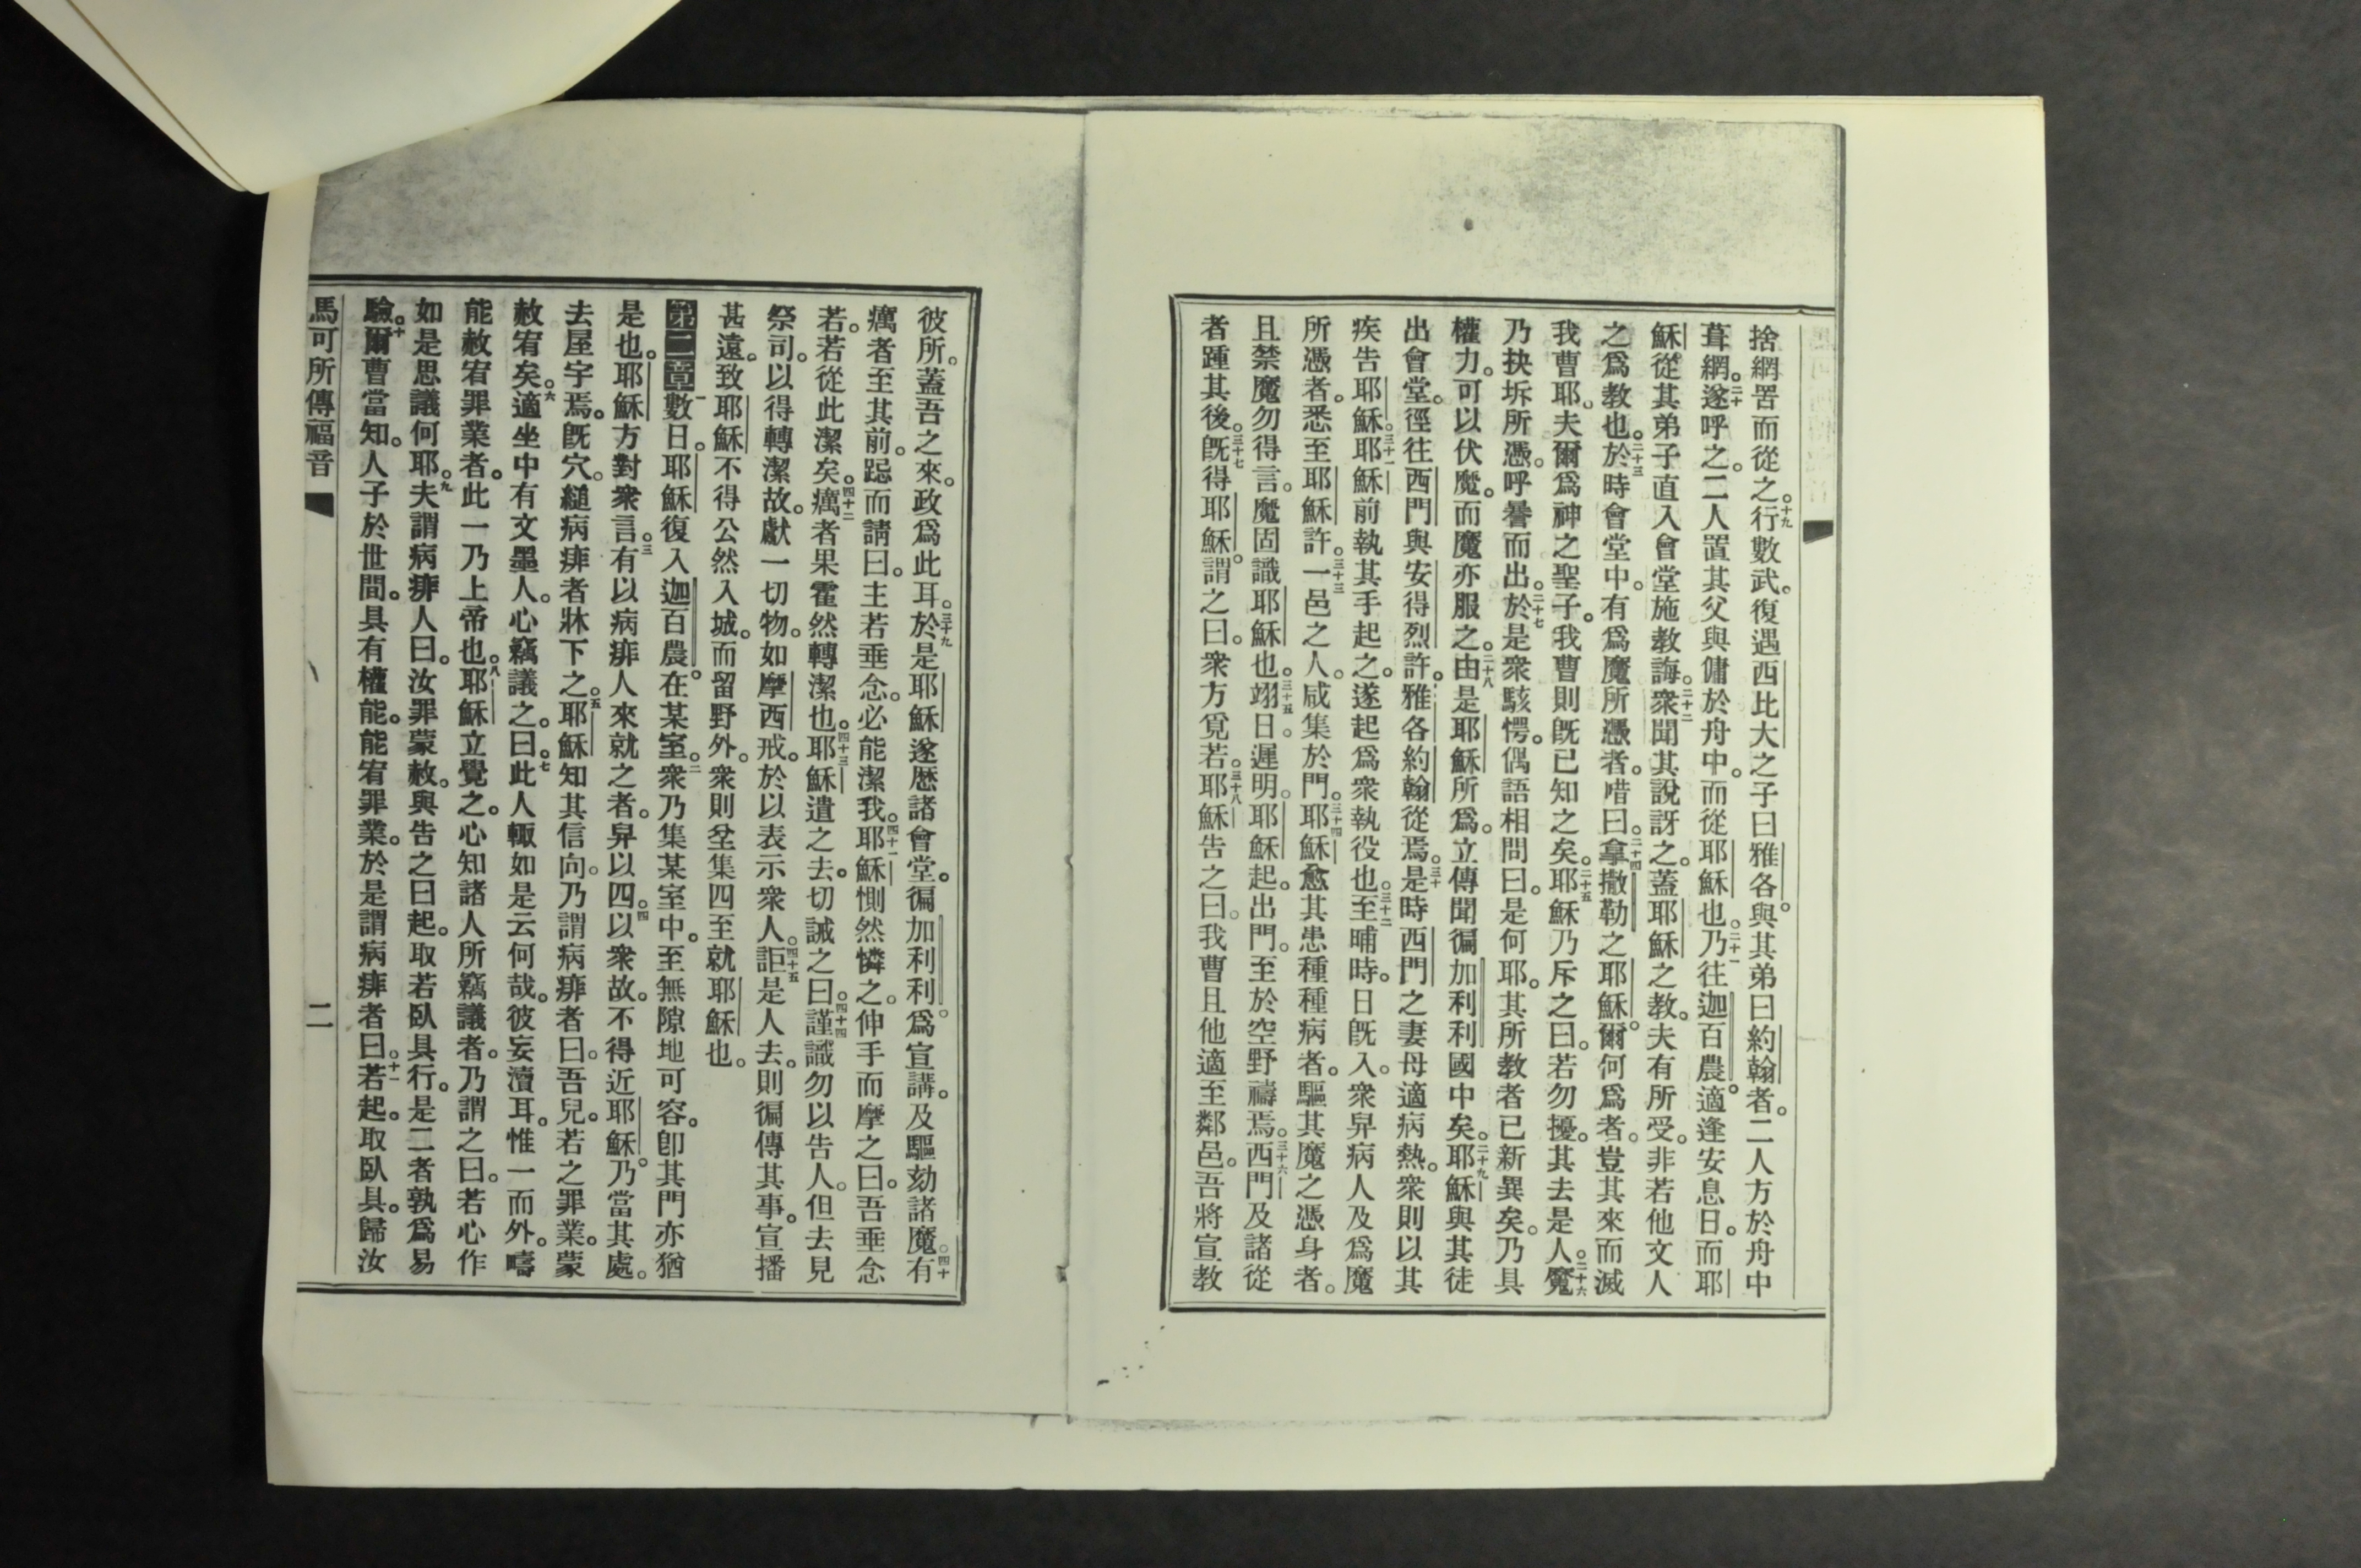 捨網罟而從之。十九行數武。復遇西比大之子曰雅各。與其弟曰約翰者。二人方於舟中
葺網。二十遂呼之。二人置其父與傭於舟中。而從耶穌也。二十一乃往迦百農。適逢安息日。而耶
穌從其弟子直入會堂施教誨。二十二衆聞其說訝之。蓋耶穌之教。夫有所受。非若他文人
之爲教也。二十三於時會堂中。有爲魔所憑者。唶曰。二十四拿撒勒之耶穌。爾何爲者。豈其來而滅
我曹耶。夫爾爲神之聖子。我曹則既已知之矣。二十五耶穌乃斥之曰。若勿擾。其去是人。二十六魔
乃抉坼所憑。呼謈而出。二十七於是衆駭愕。偶語相問曰。是何耶。其所教者已新異矣。乃具
權力。可以伏魔。而魔亦服之。二十八由是耶穌所爲。立傳聞徧加利利國中矣。二十九耶穌與其徒
出會堂。徑往西門與安得烈許。雅各約翰從焉。三十是時西門之妻母適病熱。衆則以其
疾告耶穌。三十一耶穌前執其手起之。遂起爲衆執役也。三十二至晡時。日既入。衆舁病人及爲魔
所憑者。悉至耶穌許。三十三一邑之人。咸集於門。三十四耶穌愈其患種種病者。驅其魔之憑身者。
且禁魔勿得言。魔固識耶穌也。三十五翊日。遲明。耶穌起。出門。至於空野禱焉。三十六西門及諸從
者踵其後。三十七既得耶穌。謂之曰。衆方覓若。三十八耶穌告之曰。我曹且他適至鄰邑。吾將宣教
彼所。蓋吾之來。政爲此耳。三十九於是耶穌遂歷諸會堂。徧加利利。爲宣講。及驅劾諸魔。四十有
癘者至其前。跽而請曰。主若垂念。必能潔我。四十一耶穌惻然憐之。伸手而摩之曰。吾垂念
若。若從此潔矣。四十二癘者果霍然轉潔也。四十三耶穌遣之去。切誡之曰。四十四謹識勿以告人。但去見
祭司。以得轉潔故。獻一切物。如摩西戒。於以表示衆人。四十五詎是人去。則徧傳其事。宣播
甚遠。致耶穌不得公然入城。而留野外。衆則坌集四至就耶穌也。
第二章一數日。耶穌復入迦百農。在某室。二衆乃集某室中。至無隙地可容。卽其門亦猶
是也。耶穌方對衆言。三有以病痱人來就之者。舁以四。四以衆故。不得近耶穌。乃當其處。
去屋宇焉。既穴。縋病痱者牀下之。五耶穌知其信向。乃謂病痱者曰。吾兒。若之罪業。蒙
赦宥矣。六適坐中有文墨人。心竊議之。曰。七此人輒如是云何哉。彼妄瀆耳。惟一而外。疇
能赦宥罪業者。此一乃上帝也。八耶穌立覺之。心知諸人所竊議者。乃謂之曰。若心作
如是思議何耶。九夫謂病痱人曰。汝罪蒙赦。與告之曰起。取若臥具行。是二者孰爲易
驗。十爾曹當知。人子於世間。具有權能。能宥罪業。於是謂病痱者曰。十一若起。取臥具。歸汝
馬可所傳福音
二